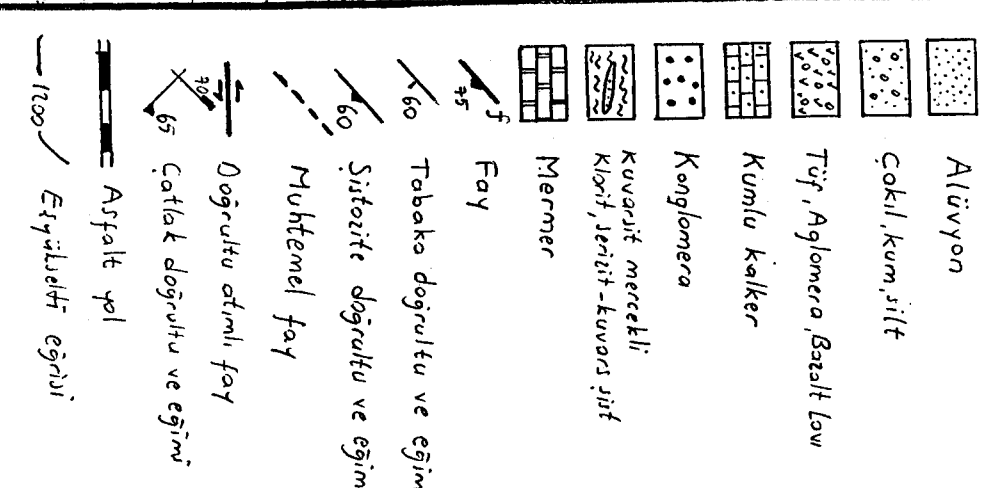 Alüvyon
Çakıl, kum, silt
Tüf, Aglomera, Bazalt Lavı
Kumlu kalker
Konglomera
Kuvarsit mercekli
Klorit, serizit-kuvars şist
Mermer
75 f Fay
60 Tabaka doğrultu ve eğim
60 Şistozite doğrultu ve eğim
Muhtemel fay
Doğrultu atımlı fay
70 65 Çatlak doğrultu ve eğimi
Asfalt yol
1200 Eşyükselti eğrisi